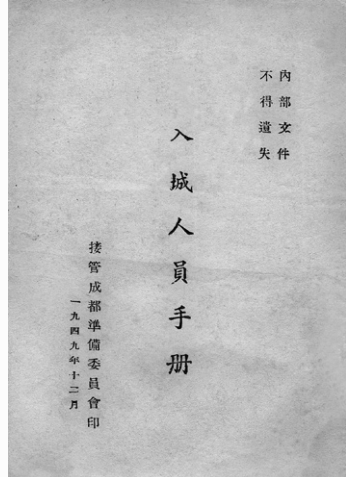 內部文件
不得遺失
入城人員手册
接管成都準備委員會印
一九四九年十二月